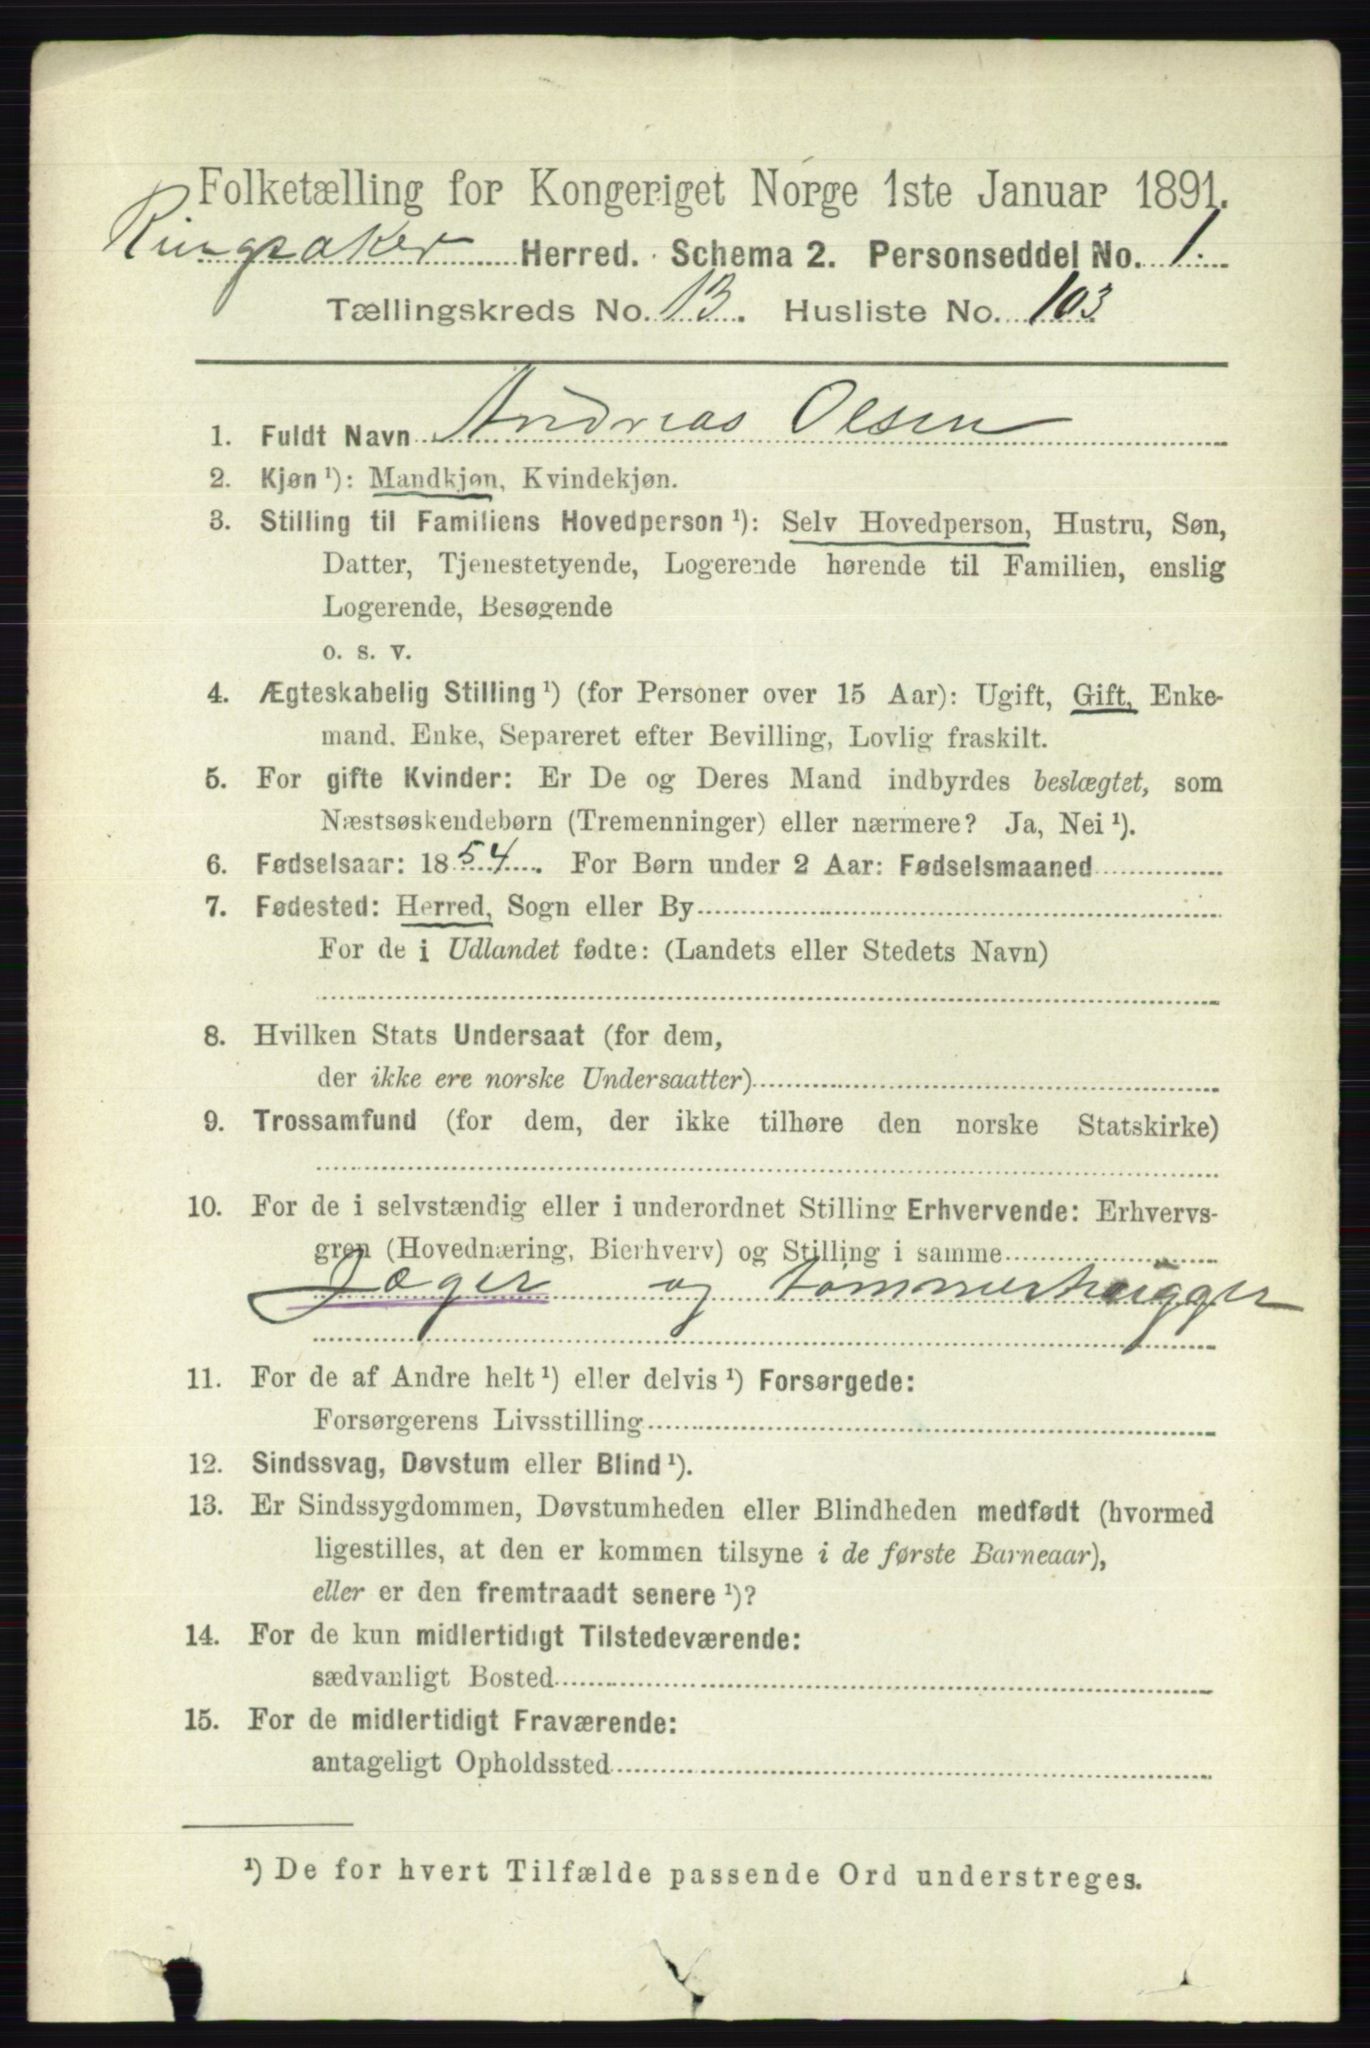 Folketælling for Kongeriget Norge 1ste Januar 1891.
Ringsaker Herred. Schema 2. Personseddel No. 1.
Tællingskreds No. 13. Husliste No. 103
1. Fuldt Navn Andreas Olsen
2. Kjøn ¹): Mandkjøn, Kvindekjøn.
3. Stilling til Familiens Hovedperson ¹): Selv Hovedperson, Hustru, Søn,
Datter, Tjenestetyende, Logerende hørende til Familien, enslig
Logerende, Besøgende
o. s. v.
4. Ægteskabelig Stilling ¹) (for Personer over 15 Aar): Ugift, Gift, Enke-
mand. Enke, Separeret efter Bevilling, Lovlig fraskilt.
5. For gifte Kvinder: Er De og Deres Mand indbyrdes beslægtet, som
Næstsøskendebørn (Tremenninger) eller nærmere? Ja, Nei ¹).
6. Fødselsaar: 1854. For Børn under 2 Aar: Fødselsmaaned
7. Fødested: Herred, Sogn eller By
For de i Udlandet fødte: (Landets eller Stedets Navn)
8. Hvilken Stats Undersaat (for dem,
der ikke ere norske Undersaatter)
9. Trossamfund (for dem, der ikke tilhøre den norske Statskirke)
10. For de i selvstændig eller i underordnet Stilling Erhvervende: Erhvervs-
gren (Hovednæring, Bierhverv) og Stilling i samme
Jæger og tømmerhugger
11. For de af Andre helt ¹) eller delvis ¹) Forsørgede:
Forsørgerens Livsstilling
12. Sindssvag, Døvstum eller Blind ¹).
13. Er Sindssygdommen, Døvstumheden eller Blindheden medfødt (hvormed
ligestilles, at den er kommen tilsyne i de første Barneaar),
eller er den fremtraadt senere ¹)?
14. For de kun midlertidigt Tilstedeværende:
sædvanligt Bosted
15. For de midlertidigt Fraværende:
antageligt Opholdssted
¹) De for hvert Tilfælde passende Ord understreges.